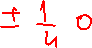 ± 1/4 0